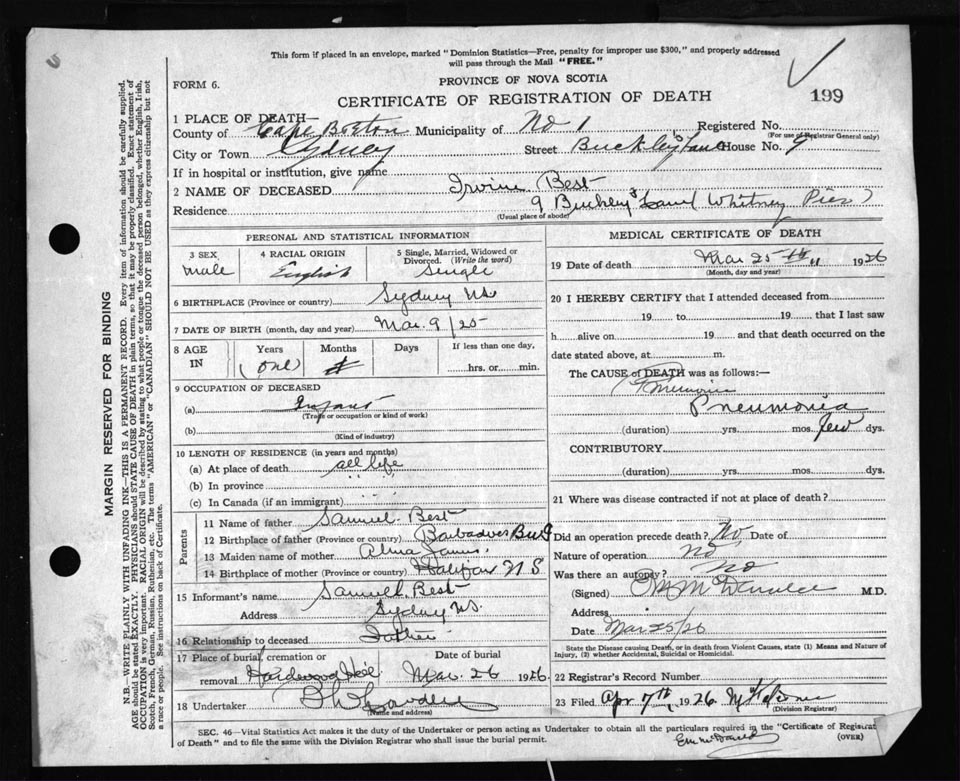 This form if placed in an envelope, marked "Dominion Statistics—Free, penalty for improper use $300," and properly addressed
will pass through the Mail "FREE."
FORM 6.
PROVINCE OF NOVA SCOTIA
CERTIFICATE OF REGISTRATION OF DEATH
199
1 PLACE OF DEATH—
County of Cape Breton Municipality of No 1 Registered No.
(For use of Registrar General only)
City or Town Sydney Street Buckley's Lane House No. 9
If in hospital or institution, give name
2 NAME OF DECEASED Irvine Best
Residence 9 Buckley's Lane Whitney Pier
(Usual place of abode)
PERSONAL AND STATISTICAL INFORMATION
3 SEX male
4 RACIAL ORIGIN English
5 Single, Married, Widowed or Divorced. (Write the word) Single
6 BIRTHPLACE (Province or country) Sydney NS
7 DATE OF BIRTH (month, day and year) Mar. 9/25
8 AGE IN Years (one) Months Days If less than one day, hrs. or min.
9 OCCUPATION OF DECEASED
(a) Infant
(Trade or occupation or kind of work)
(b)
(Kind of industry)
10 LENGTH OF RESIDENCE (in years and months)
(a) At place of death all life
(b) In province " "
(c) In Canada (if an immigrant)
Parents
11 Name of father Samuel Best
12 Birthplace of father (Province or country) Barbadoes
13 Maiden name of mother Alma James
14 Birthplace of mother (Province or country) Halifax N S
15 Informant's name Samuel Best
Address Sydney NS.
16 Relationship to deceased Father
17 Place of burial, cremation or removal Hardwood Hill
Date of burial Mar. 26 1926
18 Undertaker
(Name and address)
MEDICAL CERTIFICATE OF DEATH
19 Date of death Mar 25th 1926
(Month, day and year)
20 I HEREBY CERTIFY that I attended deceased from
19 to 19 that I last saw
h alive on 19 and that death occurred on the
date stated above, at m.
The CAUSE of DEATH was as follows:—
Pneumonia
(duration) yrs. mos. few dys.
CONTRIBUTORY.
(duration) yrs. mos. dys.
21 Where was disease contracted if not at place of death?
Did an operation precede death? No Date of
Nature of operation No
Was there an autopsy? No
(Signed) M McDonald M.D.
Address
Date Mar 25/26
State the Disease causing Death, or in death from Violent Causes, state (1) Means and Nature of
Injury, (2) whether Accidental, Suicidal or Homicidal.
22 Registrar's Record Number
23 Filed Apr 7th 1926
(Division Registrar)
SEC. 46—Vital Statistics Act makes it the duty of the Undertaker or person acting as Undertaker to obtain all the particulars required in the "Certificate of Registrat
of Death" and to file the same with the Division Registrar who shall issue the burial permit.
(OVER)
MARGIN RESERVED FOR BINDING
N.B.—WRITE PLAINLY WITH UNFADING INK—THIS IS A PERMANENT RECORD. Every item of information should be carefully supplied.
AGE should be stated EXACTLY. PHYSICIANS should STATE CAUSE OF DEATH in plain terms, so that it may be properly classified. Exact statement of
OCCUPATION is very important. RACIAL ORIGIN will be described by stating to what people or tongue the deceased person belonged, whether English, Irish,
Scotch, French, German, Russian, Ruthenian, etc. The terms "AMERICAN" or "CANADIAN" SHOULD NOT BE USED as they express citizenship but not
a race or people. See instructions on back of Certificate.